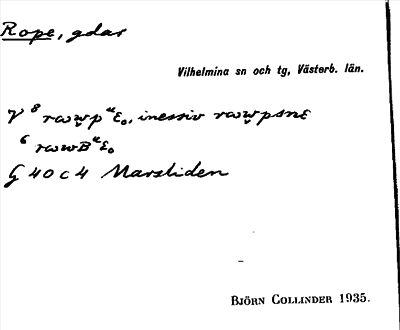 Rope, gdar
Vilhelmina sn och tg, Västerb. län.
V⁸ rωw̬pᵘ̈Ɛₒ, inessiv rωw̬psnƐ
⁶ rωwBᵘ̈Ɛₒ
G 40 c 4 Marsliden
BJÖRN COLLINDER 1935.